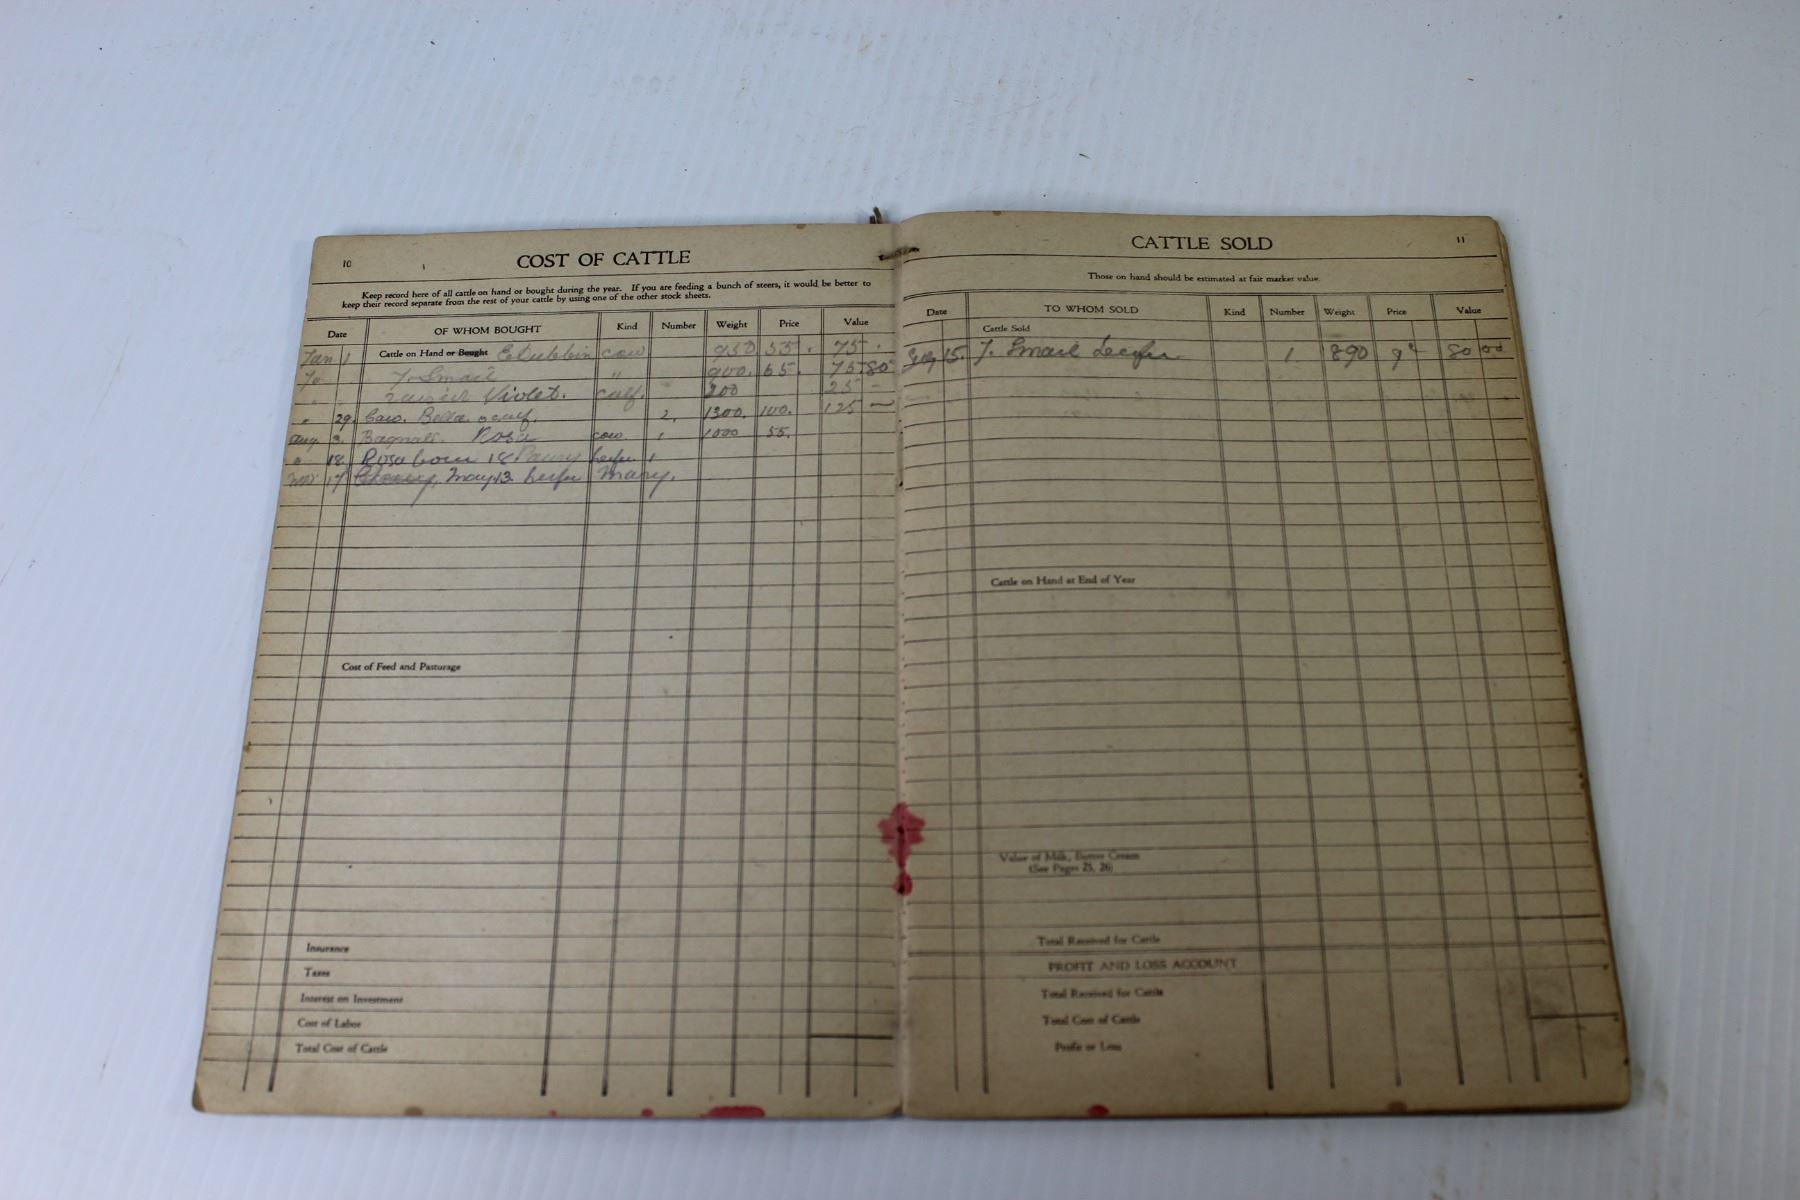 10
COST OF CATTLE
Keep record here of all cattle on hand or bought during the year. If you are feeding a bunch of steers, it would be better to
keep their record separate from the rest of your cattle by using one of the other stock sheets.
Date OF WHOM BOUGHT Kind Number Weight Price Value
Jan 1 Cattle on Hand or Bought cow 950 55. 75.
T. Smail " 900. 65. 75
Violet. calf. 200 25 -
" 29. Cow. Bella. calf. 2. 1300. 100. 125 -
Aug 3. Rosa cow. 1 1000 55.
" 18. Rosa 18 heifer 1
17 May 13. heifer Mary.
Cost of Feed and Pasturage
Insurance
Taxes
Interest on Investment
Cost of Labor
Total Cost of Cattle
CATTLE SOLD
11
Those on hand should be estimated at fair market value.
Date TO WHOM SOLD Kind Number Weight Price Value
Cattle Sold
15. T. Smail 1. 890 9¢ 80 00
Cattle on Hand at End of Year
Value of Milk, Butter Cream
(See Pages 25, 26)
Total Received for Cattle
PROFIT AND LOSS ACCOUNT
Total Received for Cattle
Total Cost of Cattle
Profit or Loss